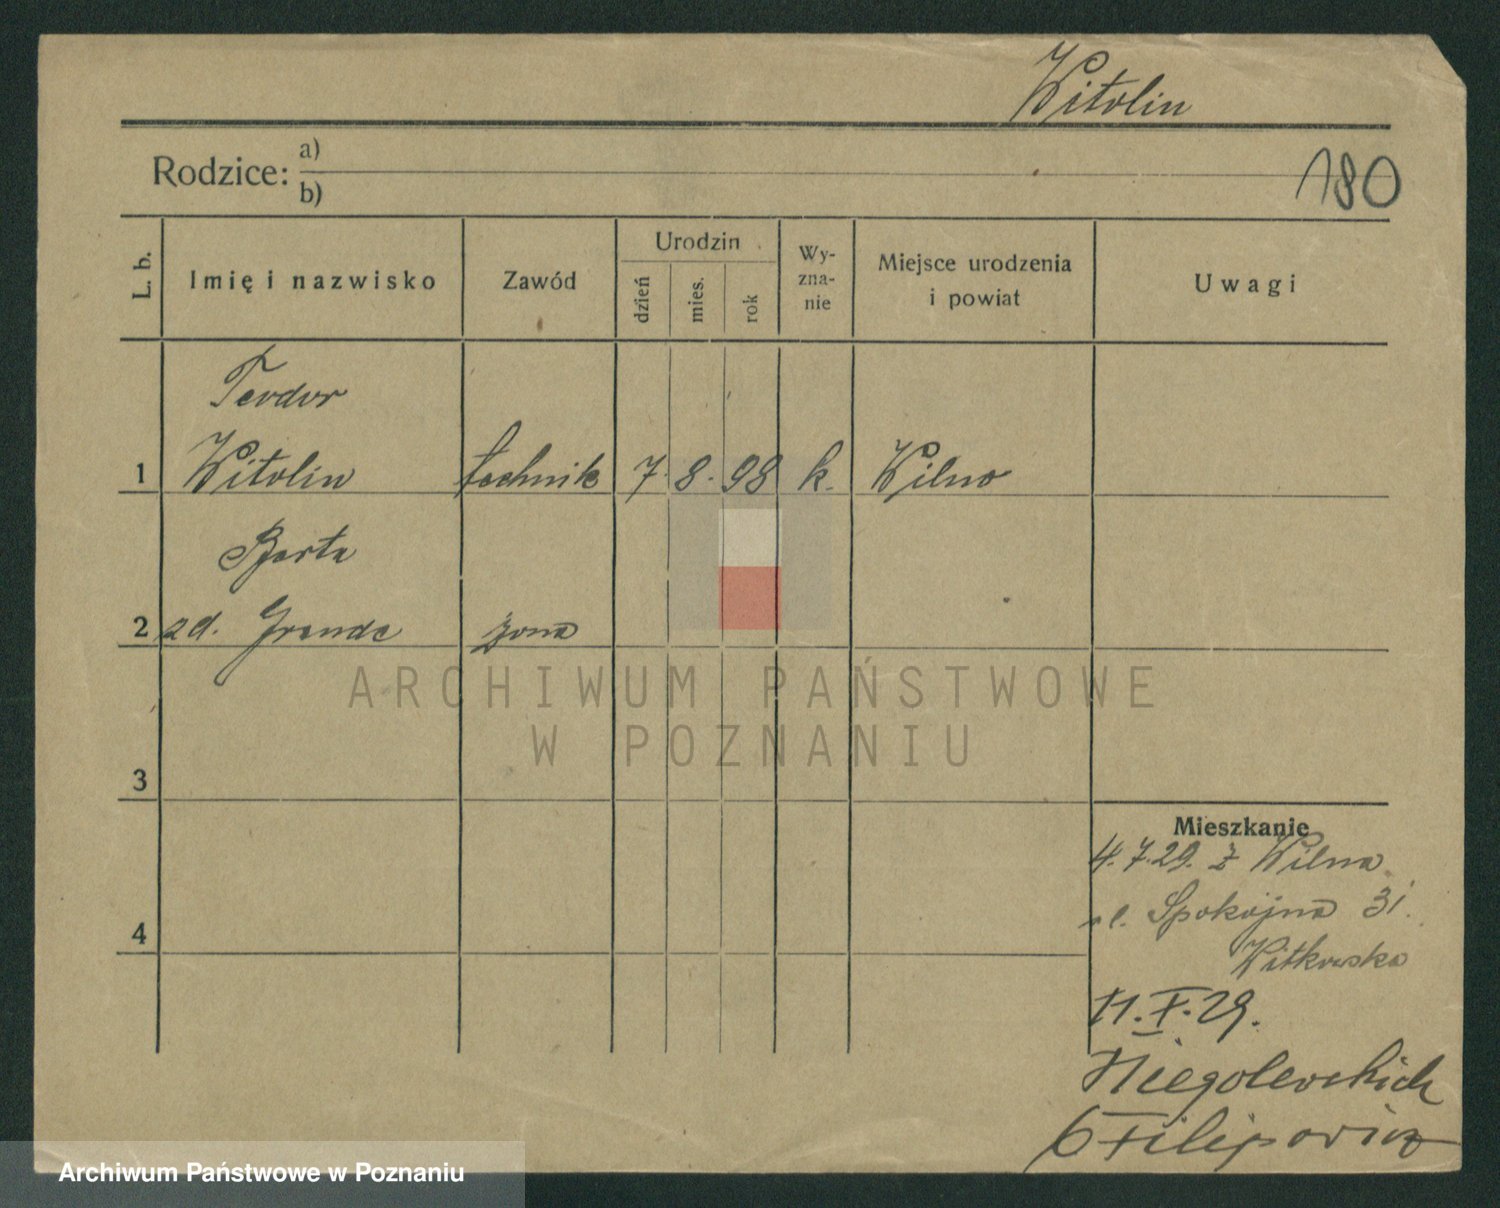 Witolin
Rodzice: a)
b)
180
L. b.
Imię i nazwisko
Zawód
Urodzin
dzień
mies.
rok
Wy-
zna-
nie
Miejsce urodzenia
i powiat
Uwagi
Teodor
1 Witolin technik 7. 8. 98 k. Wilno
Berta
2 zd. Grande żona
ARCHIWUM PAŃSTWOWE
W POZNANIU
3
Mieszkanie
4.7.29. z Wilna
ul. Spokojna 31.
4
Witkowska
11.X.29.
Niegolewskich
6 Filipowicz
Archiwum Państwowe w Poznaniu